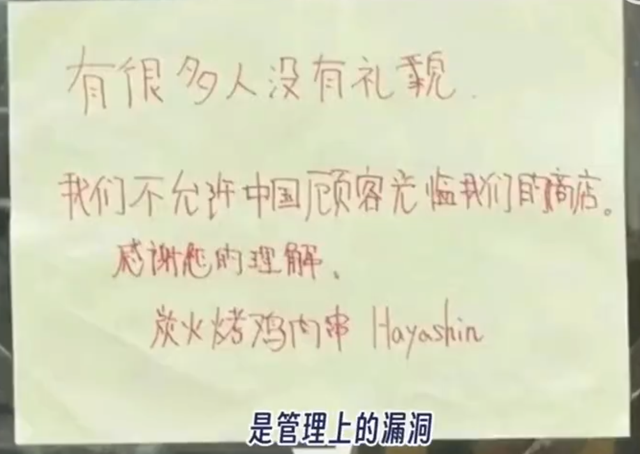 有很多人没有礼貌.
我们不允许中国顾客光临我们的商店。
感谢您的理解、
炭火烤鸡肉串 Hayashin
是管理上的漏洞